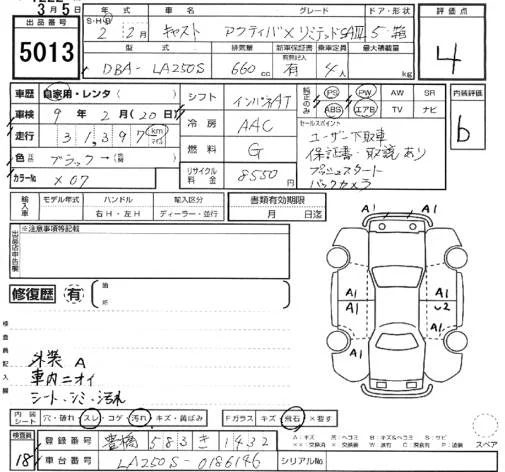 3月5日
出品番号 5013
年式 S・H・R 2年 2月
車名 キャスト
グレード アクティバXリミテッドSAⅢ
ドア・形状 5 箱
型式 DBA-LA250S
排気量 660 cc
新車保証書 有無記入 有
乗車定員 4人
最大積載量 kg
評価点 4
車歴 自家用・レンタ( )
車検 9年 2月(20日)
走行 31,397 km マイル
色 ブラック→( )
カラーNo X07
シフト インパネAT
冷房 AAC
燃料 G
リサイクル料金 8550円
純正のみ PS PW AW SR
ABS エアB TV ナビ
セールスポイント
ユーザー下取車
保証書・取説あり
プッシュスタート
バックカメラ
内装評価 b
輸入車 モデル年式 ハンドル 右H・左H 輸入区分 ディーラー・並行
書類有効期限 月 日迄
出品店申告欄 ※注意事項等記載
修復歴 有 箇所
検査員記入欄
外装 A
車内ニオイ
シート・シミ・汚れ
A1 A1
A1 A1
A1 U2
A1
内装シート 穴・破れ・スレ・コゲ・汚れ・キズ・黄ばみ
Fガラス キズ・飛石・×要す
検査員 18
登録番号 豊橋 583 き 1432
車台番号 LA250S-0186146
シリアルNo
スペア